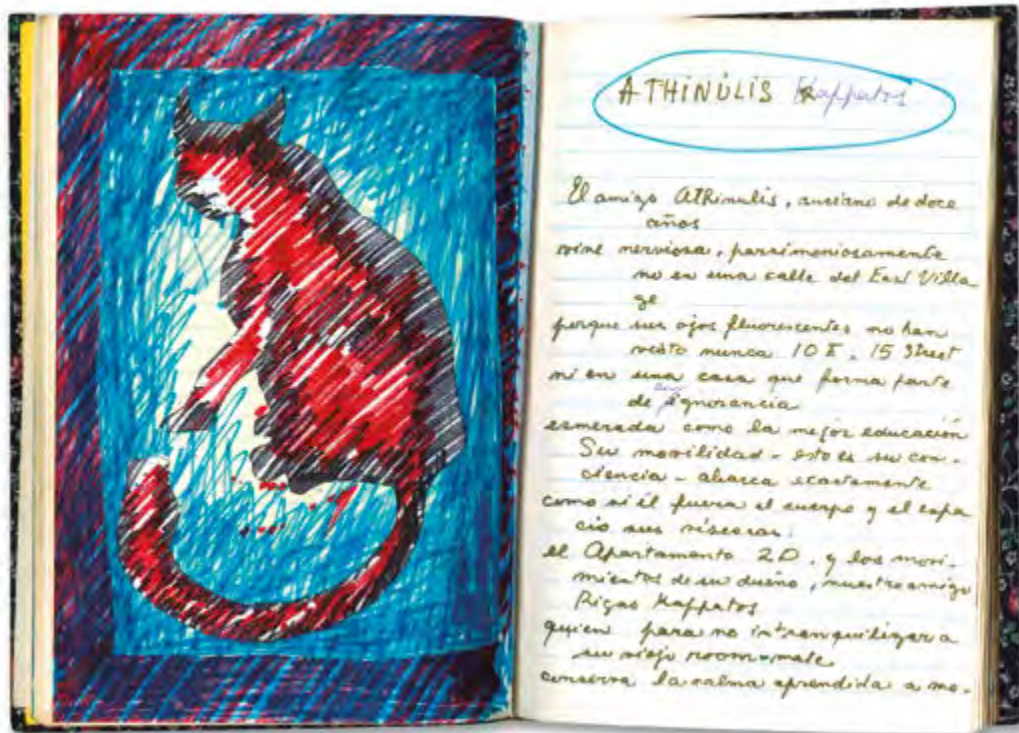 ATHINÚLIS Kappatos
El amigo Athinulis, anciano de doce
años
vive nerviosa, parsimoniosamente
no en una calle del East Villa
ge
porque sus ojos fluorescentes no han
visto nunca 10 E. 15 Street
ni en una casa que forma parte
de su ignorancia
esmerada como la mejor educación
Su movilidad - esto es su con-
ciencia - abarca exactamente
como si él fuera el cuerpo y el espa
cio sus vísceras.
el Apartamento 2D. y los movi-
mientos de su dueño, nuestro amigo
Rigas Kappatos
quien para no intranquilizar a
su viejo room-mate
conserva la calma aprendida a mo-